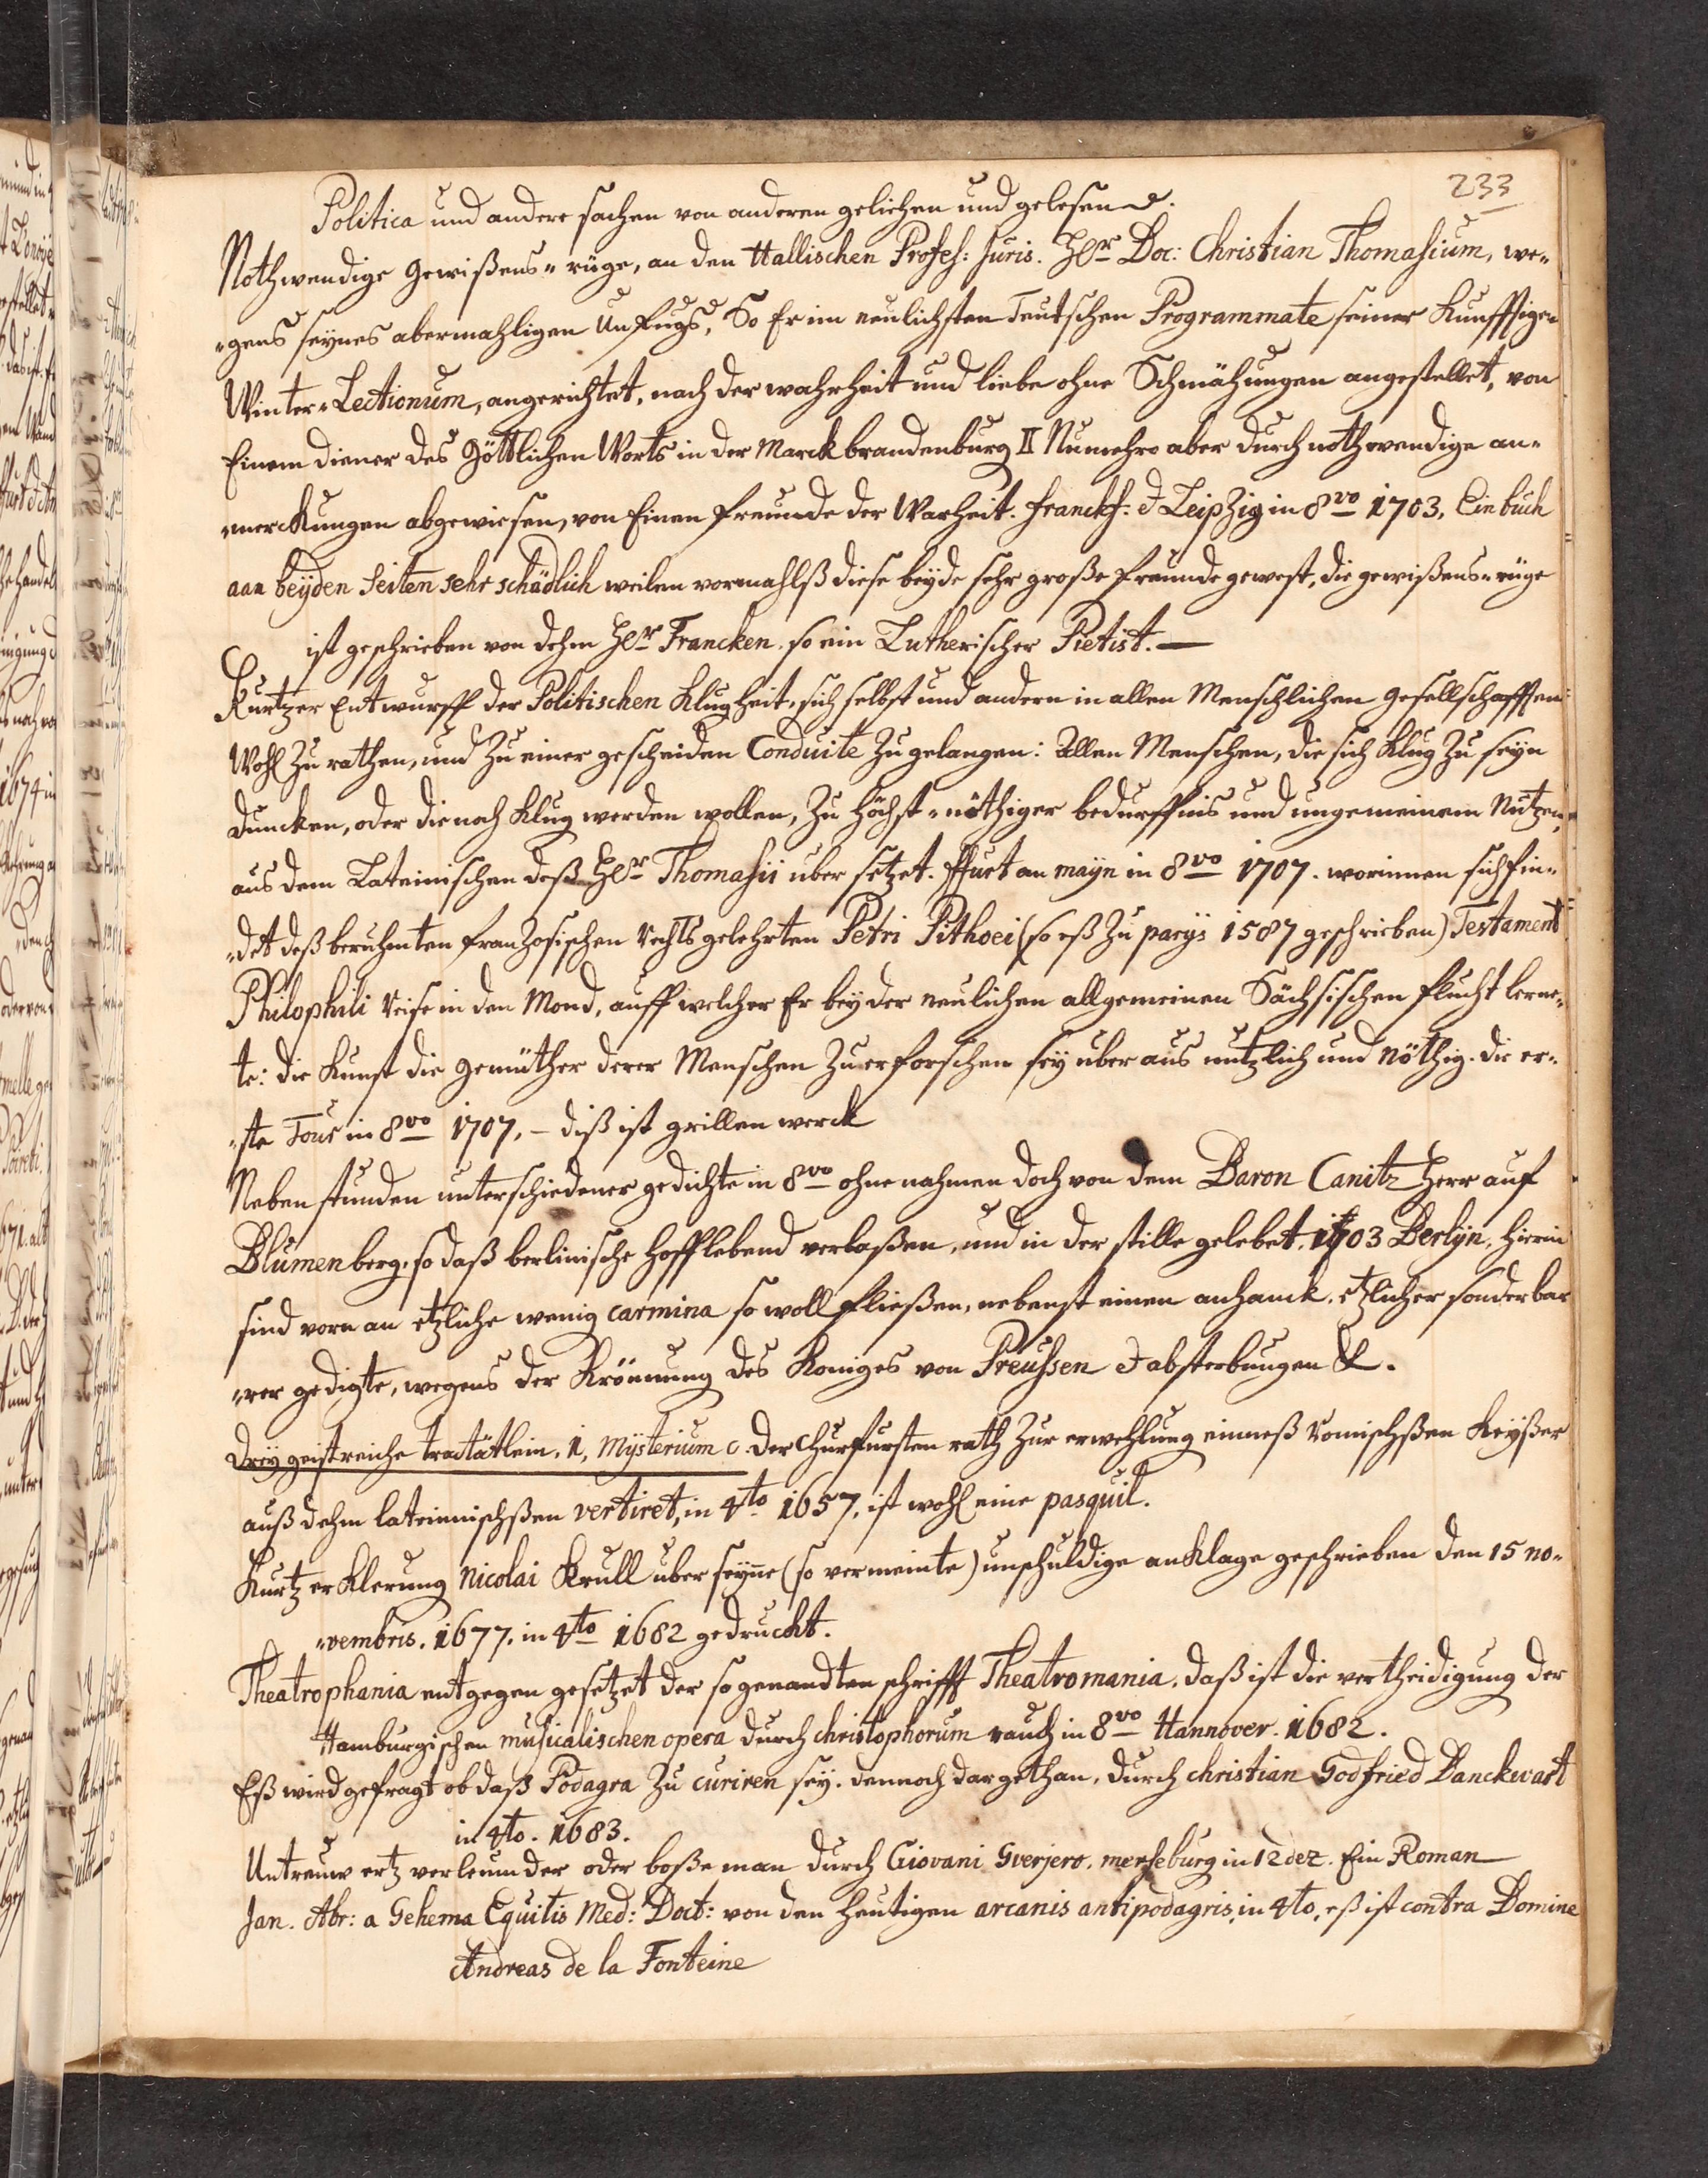 233
Politica und andere sachen von anderen geliehen und gelesen.
Nothwendige Gewißens-rüge, an den Hallischen Profeß: Juris. Hr Doc: Christian Thomasium, we-
-gens seynes abermahligen Unfugs, So Er im neulichsten Teutschen Programmate seiner Kunfftigen
Winter-Lectionum, angerichtet, nach der warheit und liebe ohne Schmähungen angestellet, von
Einem diener des Göttlichen Worts in der Marck brandenburg II Numehro aber durch nothwendige an-
-merckungen abgewiesen, von Einen freunde der Warheit. franckf: & Leipzig in 8vo 1703. Ein buch
aan beyden Seiten sehr schädlich weilen vormahlß diese beyde sehr große freunde gewest, die gewißens-rüge
ist geschrieben von dehm Hr Francken. so ein Lutherischer Pietist. —
Kurtzer Entwurff der Politischen Klugheit, sich selbst und andern in allen Menschlichen Gesellschafften
Wohl zu rathen, und zu einer gescheiden Conduite zu gelangen: Allen Menschen, die sich Klug zu seyn
duncken, oder die noch Klug werden wollen, zu höchst-nöthiger bedurffnis und ungemeinem Nutzen,
aus dem Lateinischen deß Hr Thomasii uber setzet. ffurt an mayn in 8vo 1707. worinnen sich fin-
-det deß beruhmten franzosischen rechts gelehrten Petri Pithoei (so eß zu parys 1587 geschrieben) Testament
Philophili reise in den Mond, auff welcher Er bey der neulichen allgemeinen Sächsischen flucht lerne-
te: die Kunst die gemüther derer Menschen zu erforschen sey uber aus nutzlich und nöthig. die er-
-ste Tour in 8vo 1707. – diß ist grillen werck
Neben stunden unterschiedener gedichte in 8vo ohne nahmen doch von dem Baron Canitz Herr auf
Blumenberg, so daß berlinische hoff lebend verlaßen, und in der stille gelebet. 1703 Berlyn. hierin
sind voran etzliche wenig carmina so woll fließen, nebenst einen anhanck. etzlicher sonderbar
-rer gedigte, wegens der Krönnung des Koniges von Preussen & absterbungen &c.
drey geistreiche tractätlein. 1, Mysterium c. der churfursten rath zur erwehlung einneß romischßen Keyßer
auß dehm lateinnischßen vertiret, in 4to 1657. ist wohl eine pasquil.
Kurtz er Klerung Nicolai Krull uber seyne (so vermeinte) unschuldige anklage geschrieben den 15 no-
-vembris. 1677. in 4to 1682 gedruckt.
Theatrophania entgegen gesetzet der so genandten schrifft Theatromania. daß ist die vertheidigung der
Hamburgischen musicalischen opera durch christophorum rauch in 8vo Hannover. 1682.
Eß wird gefragt ob daß Podagra zu curiren sey. dennoch dargethan, durch christian Godfried Danckwart
in 4to. 1683.
Untreuw ertz verleumder oder boße man durch Giovani Gverjero. merseburg in 12 dez. Ein Roman
Jan. Abr: a Gehema Equitis Med: Doct: von den heutigen arcanis antipodagris, in 4to, eß ist contra Domine
Andreas de la Fonteine